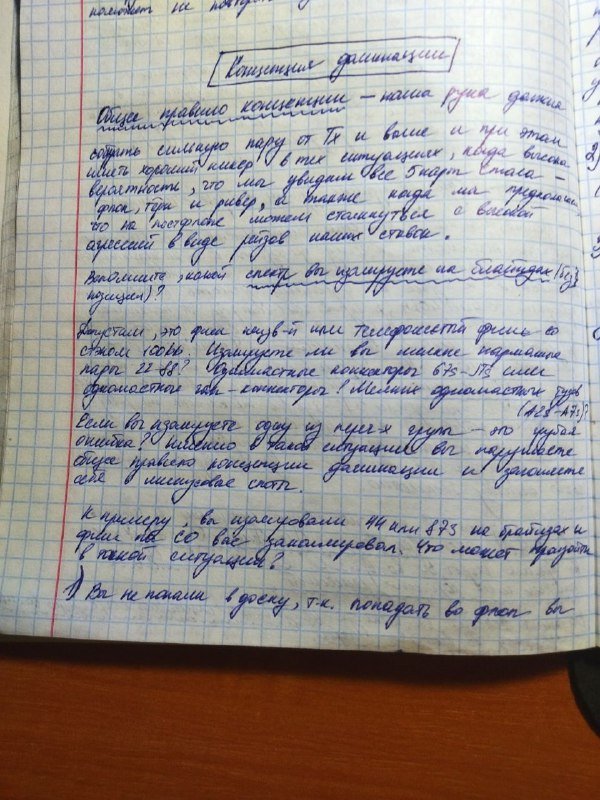 Концепция доминации
Общее правило концепции – наша рука должна
собрать сильную пару от Tx и выше и при этом
иметь хороший кикер в тех ситуациях, когда высока
вероятность, что мы увидим все 5 карт стола –
флоп, терн и ривер, а также когда мы предполагаем
что на постфлопе можем столкнуться с высокой
агрессией в виде рейзов наших ставок.
Вспомните, какой спектр вы изолируете на блайндах (без
позиции)?
Допустим, это фиш или телефонистый фиш со
стэком 100бб. Изолируете ли вы мелкие карманные
пары 22-88? Одномастные коннекторы 67s-JTs или
одномастные гэп-коннекторы? Мелких одномастных тузов
(A2s-A7s)?
Если вы изолируете одну из переч-х групп – это грубая
ошибка! Именно в такой ситуации вы нарушаете
общее правило концепции доминации и загоняете
себя в минусовые споты.
К примеру, вы изолировали 44 или 87s на блайндах и
фиш на CO вас заколлировал. Что может произойти
в такой ситуации?
1) Вы не попали в доску, т.к. попадать во флоп вы